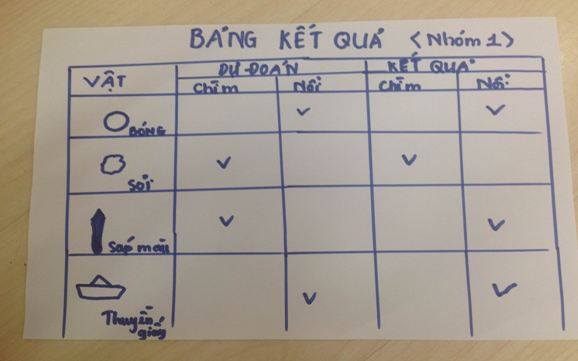 BẢNG KẾT QUẢ <Nhóm 1>
VẬT DỰ ĐOÁN KẾT QUẢ
Chìm Nổi Chìm Nổi
BÓNG
SỎI
Sáp màu
Thuyền
giấy